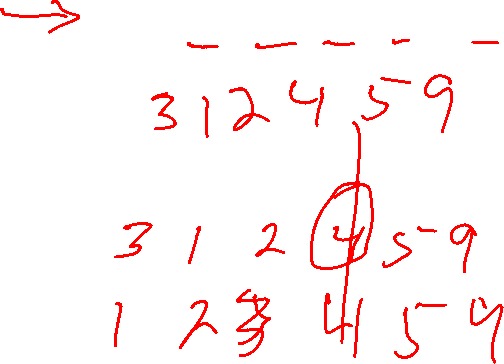 →
_ _ _ _ _
3 1 2 4 5 9
3 1 2 4 5 9
1 2 3 4 5 9